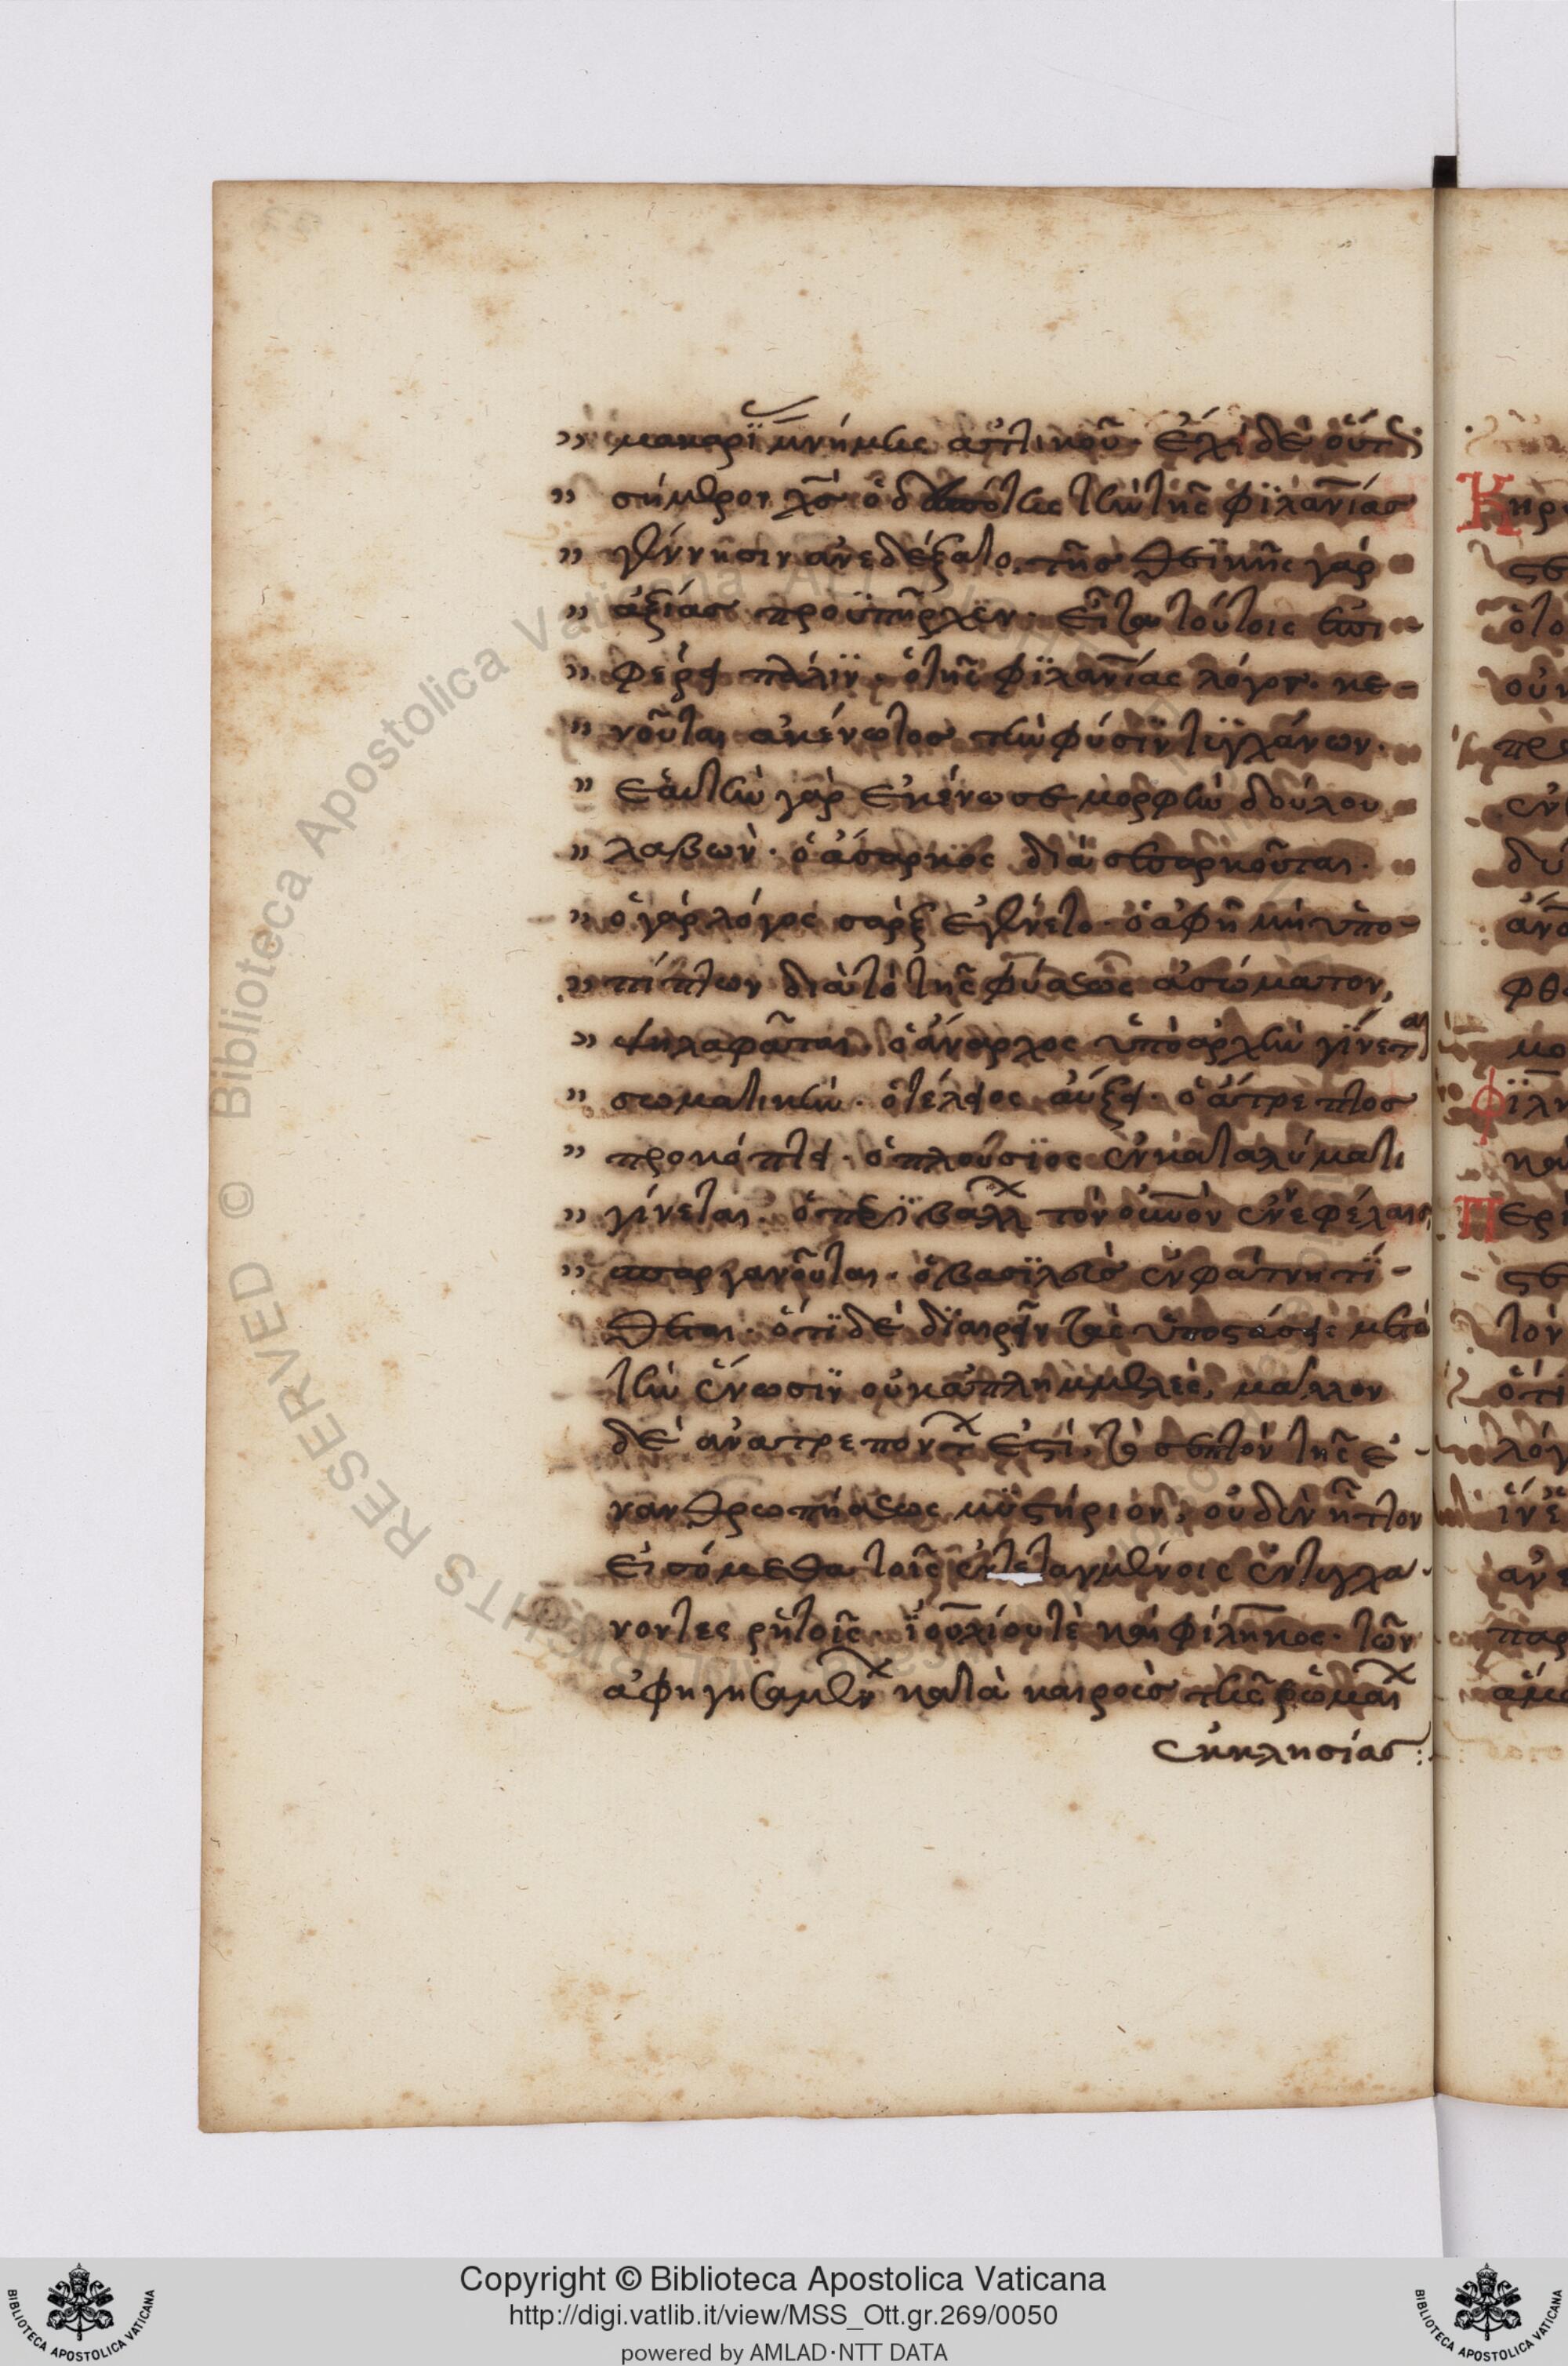 " μακαρι μνήμης αττικοῦ· ἔχει δὲ οὕτως
" σήμερον χς ὁ δεσπότης τὴν τῆς φϊλανίας
" γέννησιν ἀνεδέξατο. τῆς θεϊκῆς γὰρ
" ἀξίας προϋπῆρχεν· εἶτα τούτοις ἐπι-
" φέρει πάλιν· ὁ τῆς φϊλανίας λόγος. κε-
" νοῦται ἀκένωτος τὴν φύσιν τυγχάνων.
" ἑαυτὸν γὰρ ἐκένωσε μορφὴν δούλου
" λαβών· ὁ ἄσαρκος διὰ σὲ σαρκοῦται.
" ὁ γὰρ λόγος σὰρξ ἐγένετο· ὁ ἀφῆ μὴ ὑπο-
" πίπτων διὰ τὸ τῆς φύσεως ἀσώματον,
" ψηλαφᾶται. ὁ ἄναρχος ὑπὸ ἀρχὴν γίνεται
" σωματικήν. ὁ τέλειος αὔξει. ὁ ἄτρεπτος
" προκόπτει. ὁ πλούσιος ἐν καταλύματι
" γίνεται. ὁ περιβάλλ τὸν οὐνὸν ἐν νεφέλαις,
" σπαργανοῦται. ὁ βασϊλεὺς ἐν φάτνη τί-
θεται. ὅτι δὲ διαιρεῖν τὰς ὑποστάσεις μετὰ
τὴν ἕνωσιν οὐκ ἀπλημμελὲς, μᾶλλον
δὲ ἀνατρεπον ἐστὶ, τὸ σεπτὸν τῆς ἐ-
νανθρωπήσεως μυστήριον, οὐδὲν ἧττον
εἰσόμεθα τοῖς ἐντεταγμένοις ἐντυγχα-
νοντες ῥητοῖς. ϊουλίου τὲ καὶ φίληκος. τῶν
ἀφηγησαμεν κατὰ καιροὺς τῆς ῥωμαι
ἐκκλησίας:
Copyright © Biblioteca Apostolica Vaticana
http://digi.vatlib.it/view/MSS_Ott.gr.269/0050
powered by AMLAD·NTT DATA